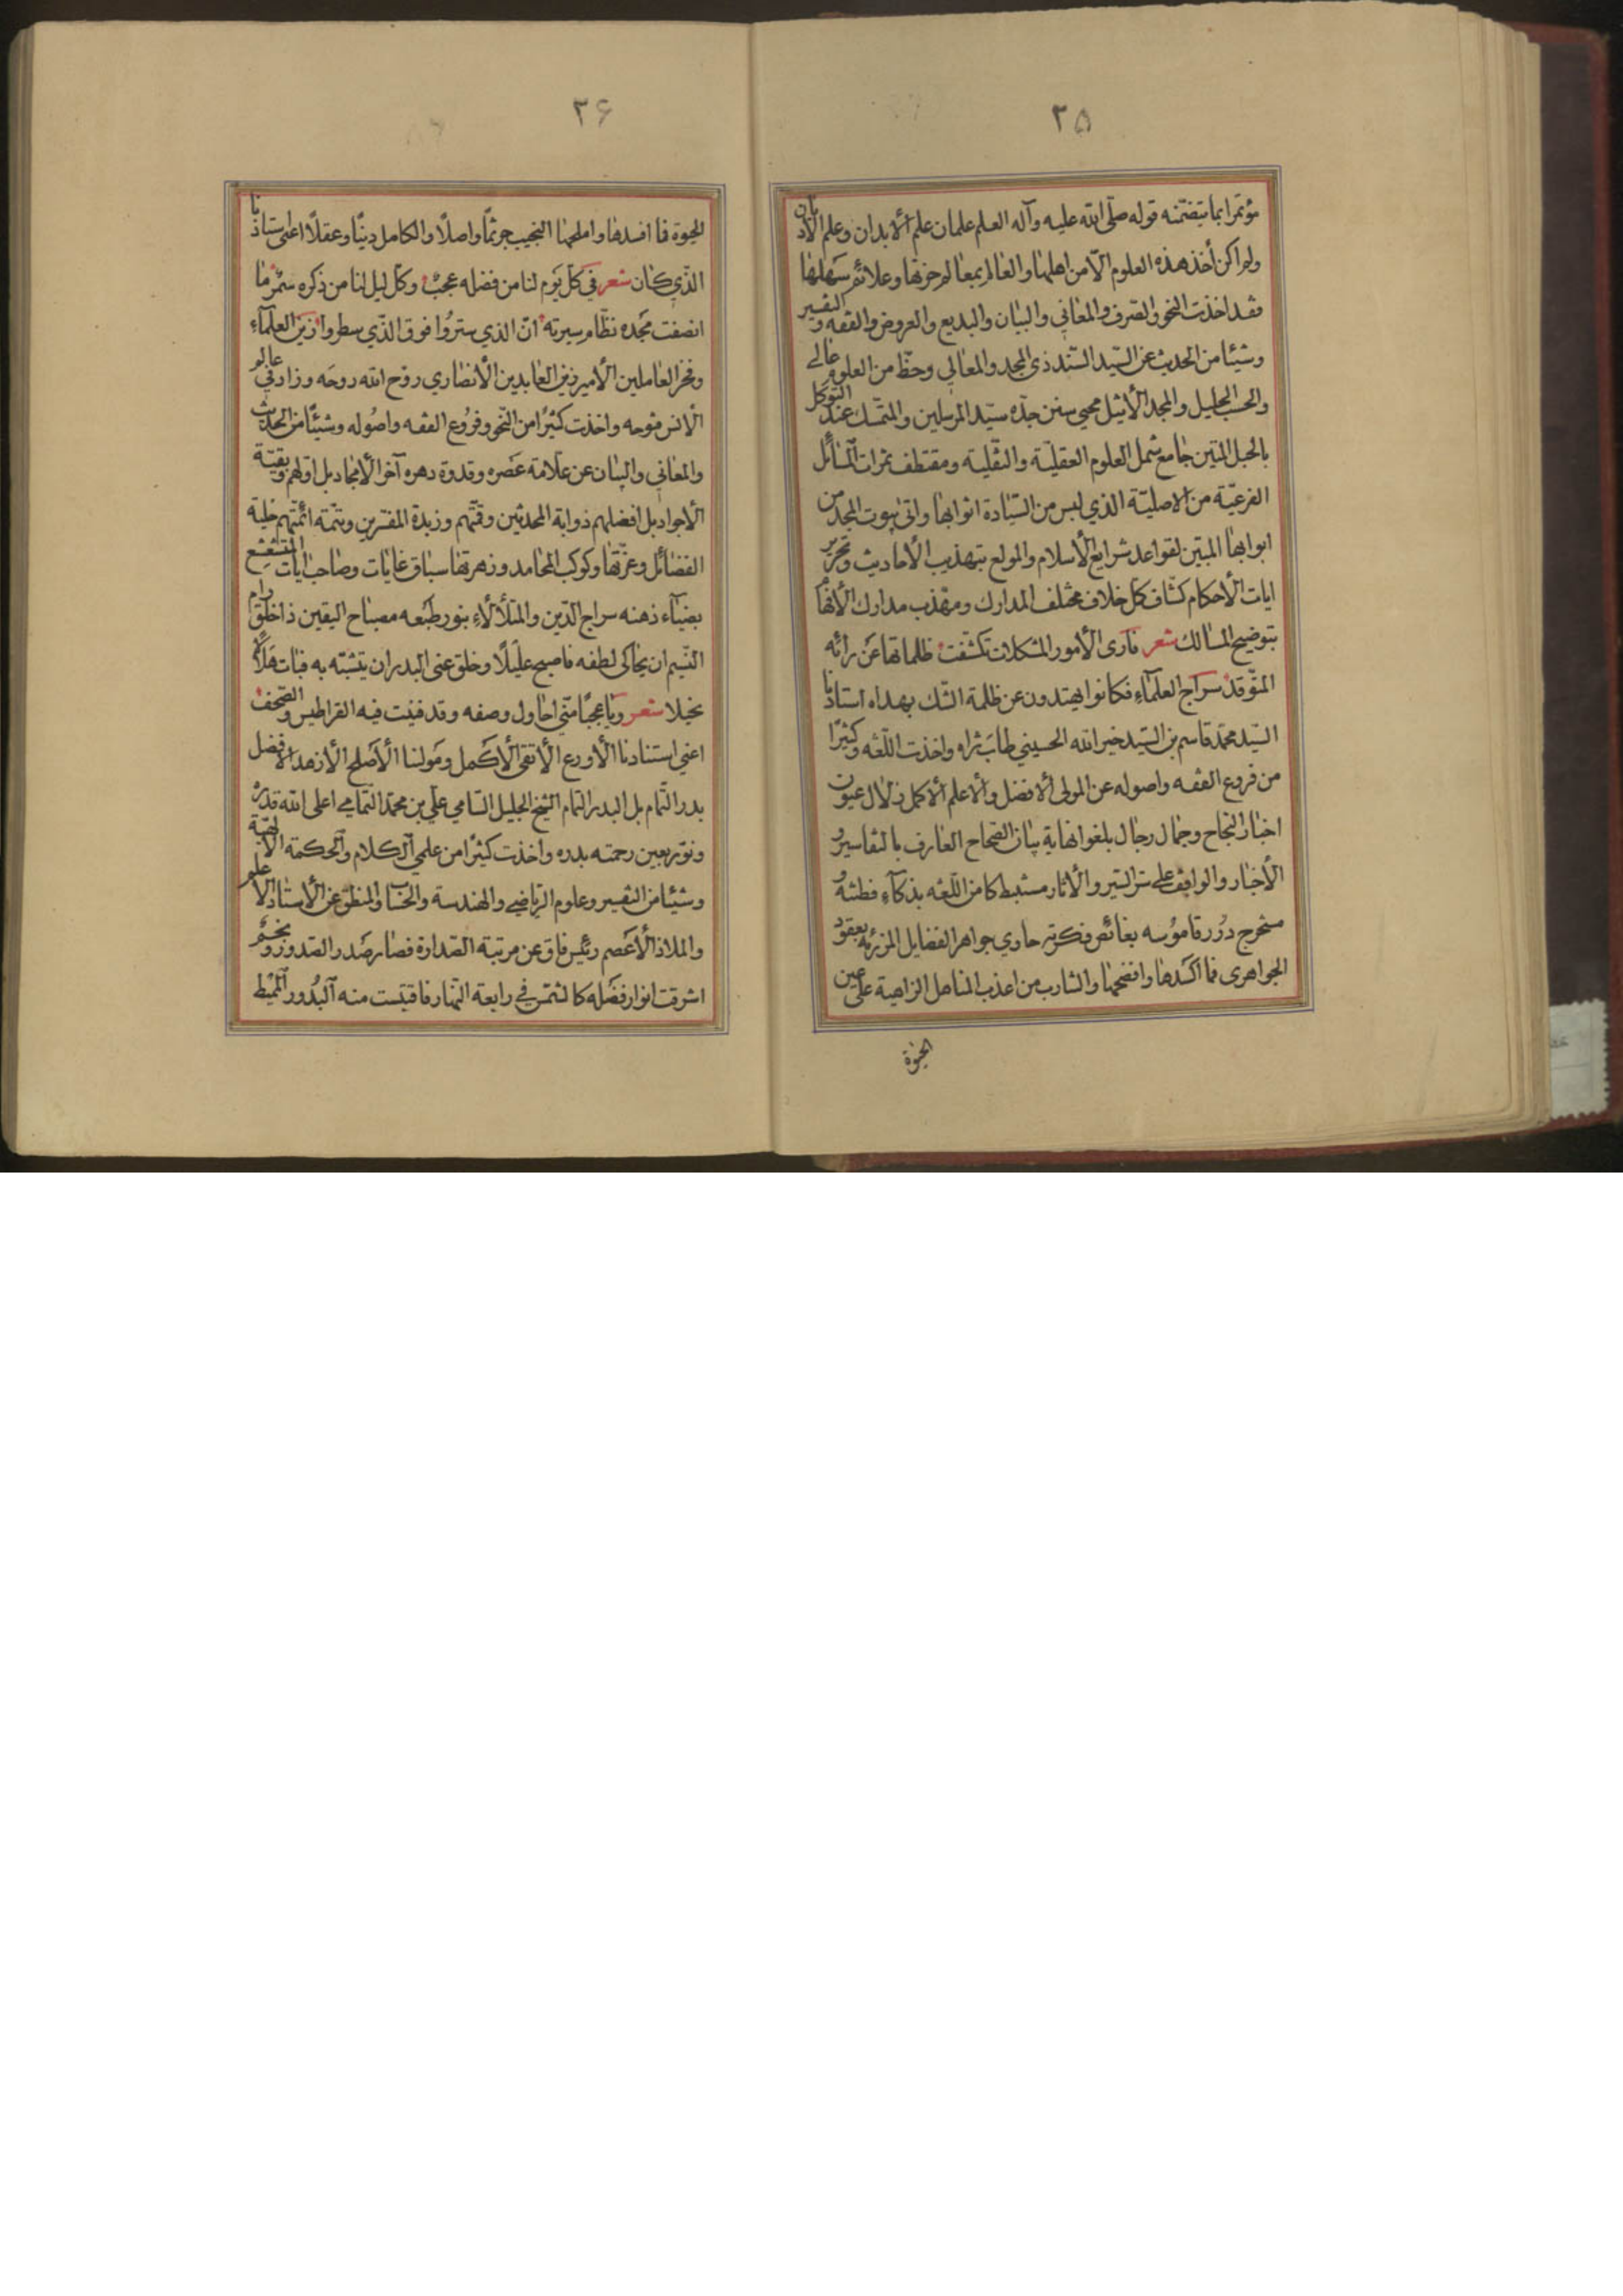 ٢٥
مؤتمرا بما يتضمّنه قوله صلّى الله عليه وآله العلم علمان علم الأبدان وعلم الأديان
ولم اكن أخذ هذه العلوم الّا من اهلها والعالم بمعالم حزنها وعلائم سهلها
فقد اخذت النحو والصّرف والمعاني والبيان والبديع والعروض والفقه والتفسير
وشيئا من الحديث عن السّيد السّند ذى المجد والمعالي وحظّ من العلوم عالي
والحسب الجليل والمجد الأثيل محيي سنن جدّه سيّد المرسلين والمتمسّك عند التوكل
بالحبل المتين جامع شمل العلوم العقليّة والنّقلية ومقتطف ثمرات المسائل
الفرعيّة من الاصليّة الذي لبس من السّيادة اثوابها واتى بيوت المجد من
ابوابها المبيّن لقواعد شرايع الأسلام والمولع بتهذيب الأحاديث وتحرير
ايات الأحكام كشّاف كل خلاف مختلف المدارك ومهذب مدارك الأفهام
بتوضيح المسالك شعر فآرى الأمور المشكلات تكشّفت ظلماتها عن رائه
المتوّقد سراج العلمآء فكانوا يهتدون عن ظلمة الشك بهداه استاذنا
السّيد محمّد قاسم بن السّيد خير الله الحسيني طاب ثراه واخذت اللّغه وكثيرًا
من فروع الفقه واصوله عن المولى الافضل والأعلم الأكمل زلال عيون
اخبار النجاح وجمال رجال بلغوا نهاية بيان الصّحاح العارف بالتفاسير و
الأخبار والواقف على سرّ السّير والأثار مستنبط كامن اللّغه بذكآء فطنته و
مستخرج درر قاموسه بغائص فكرته حاوي جواهر الفضايل المزرية بعقود
الجواهرى فما اكسدها وافضحها والشارب من اعذب المناهل الزاهية على عين
الحيوة
٢۶
الحيوة فما افسدها واملحها النجيب جرثمًا واصلًا والكامل دينًا وعقلًا اعنى استاذنا
الذّي كان شعر في كلّ يوم لنا من فضله عجب وكلّ ليل لنا من ذكره سمر ما
انصفت مجده نظّام سيرته انّ الذي ستروا فوق الذّي سطروا زين العلمآء
وفخر العاملين الأمير زين العابدين الأنصاري روّح الله روحه وزاد في عالم
الأنس فتوحه واخذت كثيرًا من النّحو وفروع الفقه واصوله وشيئًا من الحديث
والمعاني والبيان عن علّامة عصره وقدوة دهره آخر الأمجاد بل اوّلهم وبقيّة
الأجواد بل افضلهم ذوابة المحدثين وقمّتهم وزبدة المفسّرين وتتمّة ائمّتهم حلية
الفضائل وغرّتها وكوكب المحامد وزهرتها سباق غايات وصاحب ايات المتشعشع
بضيآء ذهنه سراج الدّين والمتلألاء بنور طبعه مصباح اليقين ذا خلق رام
النّسيم ان يحاكى لطفه فاصبح عليلًا وخلق عنى البدر ان يتشبّه به فبات هلالًا
نحيلا شعر ويا عجبًا منّي احاول وصفه وقد فنيت فيه القراطيس والصّحف
اعني استنادنا الأورع الأتقى الأكمل ومولنا الأصلح الأزهد الافضل
بدر التّمام بل البدر التمام الشيخ الجليل السّامي علي بن محمّد التّمامي اعلى الله قدره
ونوّر بعين رحمته بدره واخذت كثيرًا من علمي الكلام والحكمة الالهيّة
وشيئا من التفسير وعلوم الرّياضي والهندسة والحساب والمنطق عن الأستاد الأعلم
والملاذ الأعصم رئيس فاق عن مرتبة الصّدارة فصار صدر الصّدور ونجم
اشرقت انوار فضله كالشمس في رابعة النّهار فاقتبست منه البدور المميط